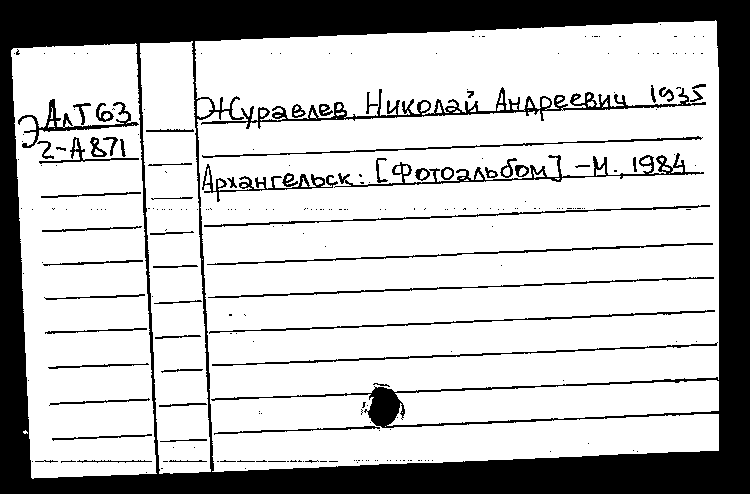 Э АлТ63
2-А871
Журавлев, Николай Андреевич 1935
Архангельск: [Фотоальбом] -М., 1984